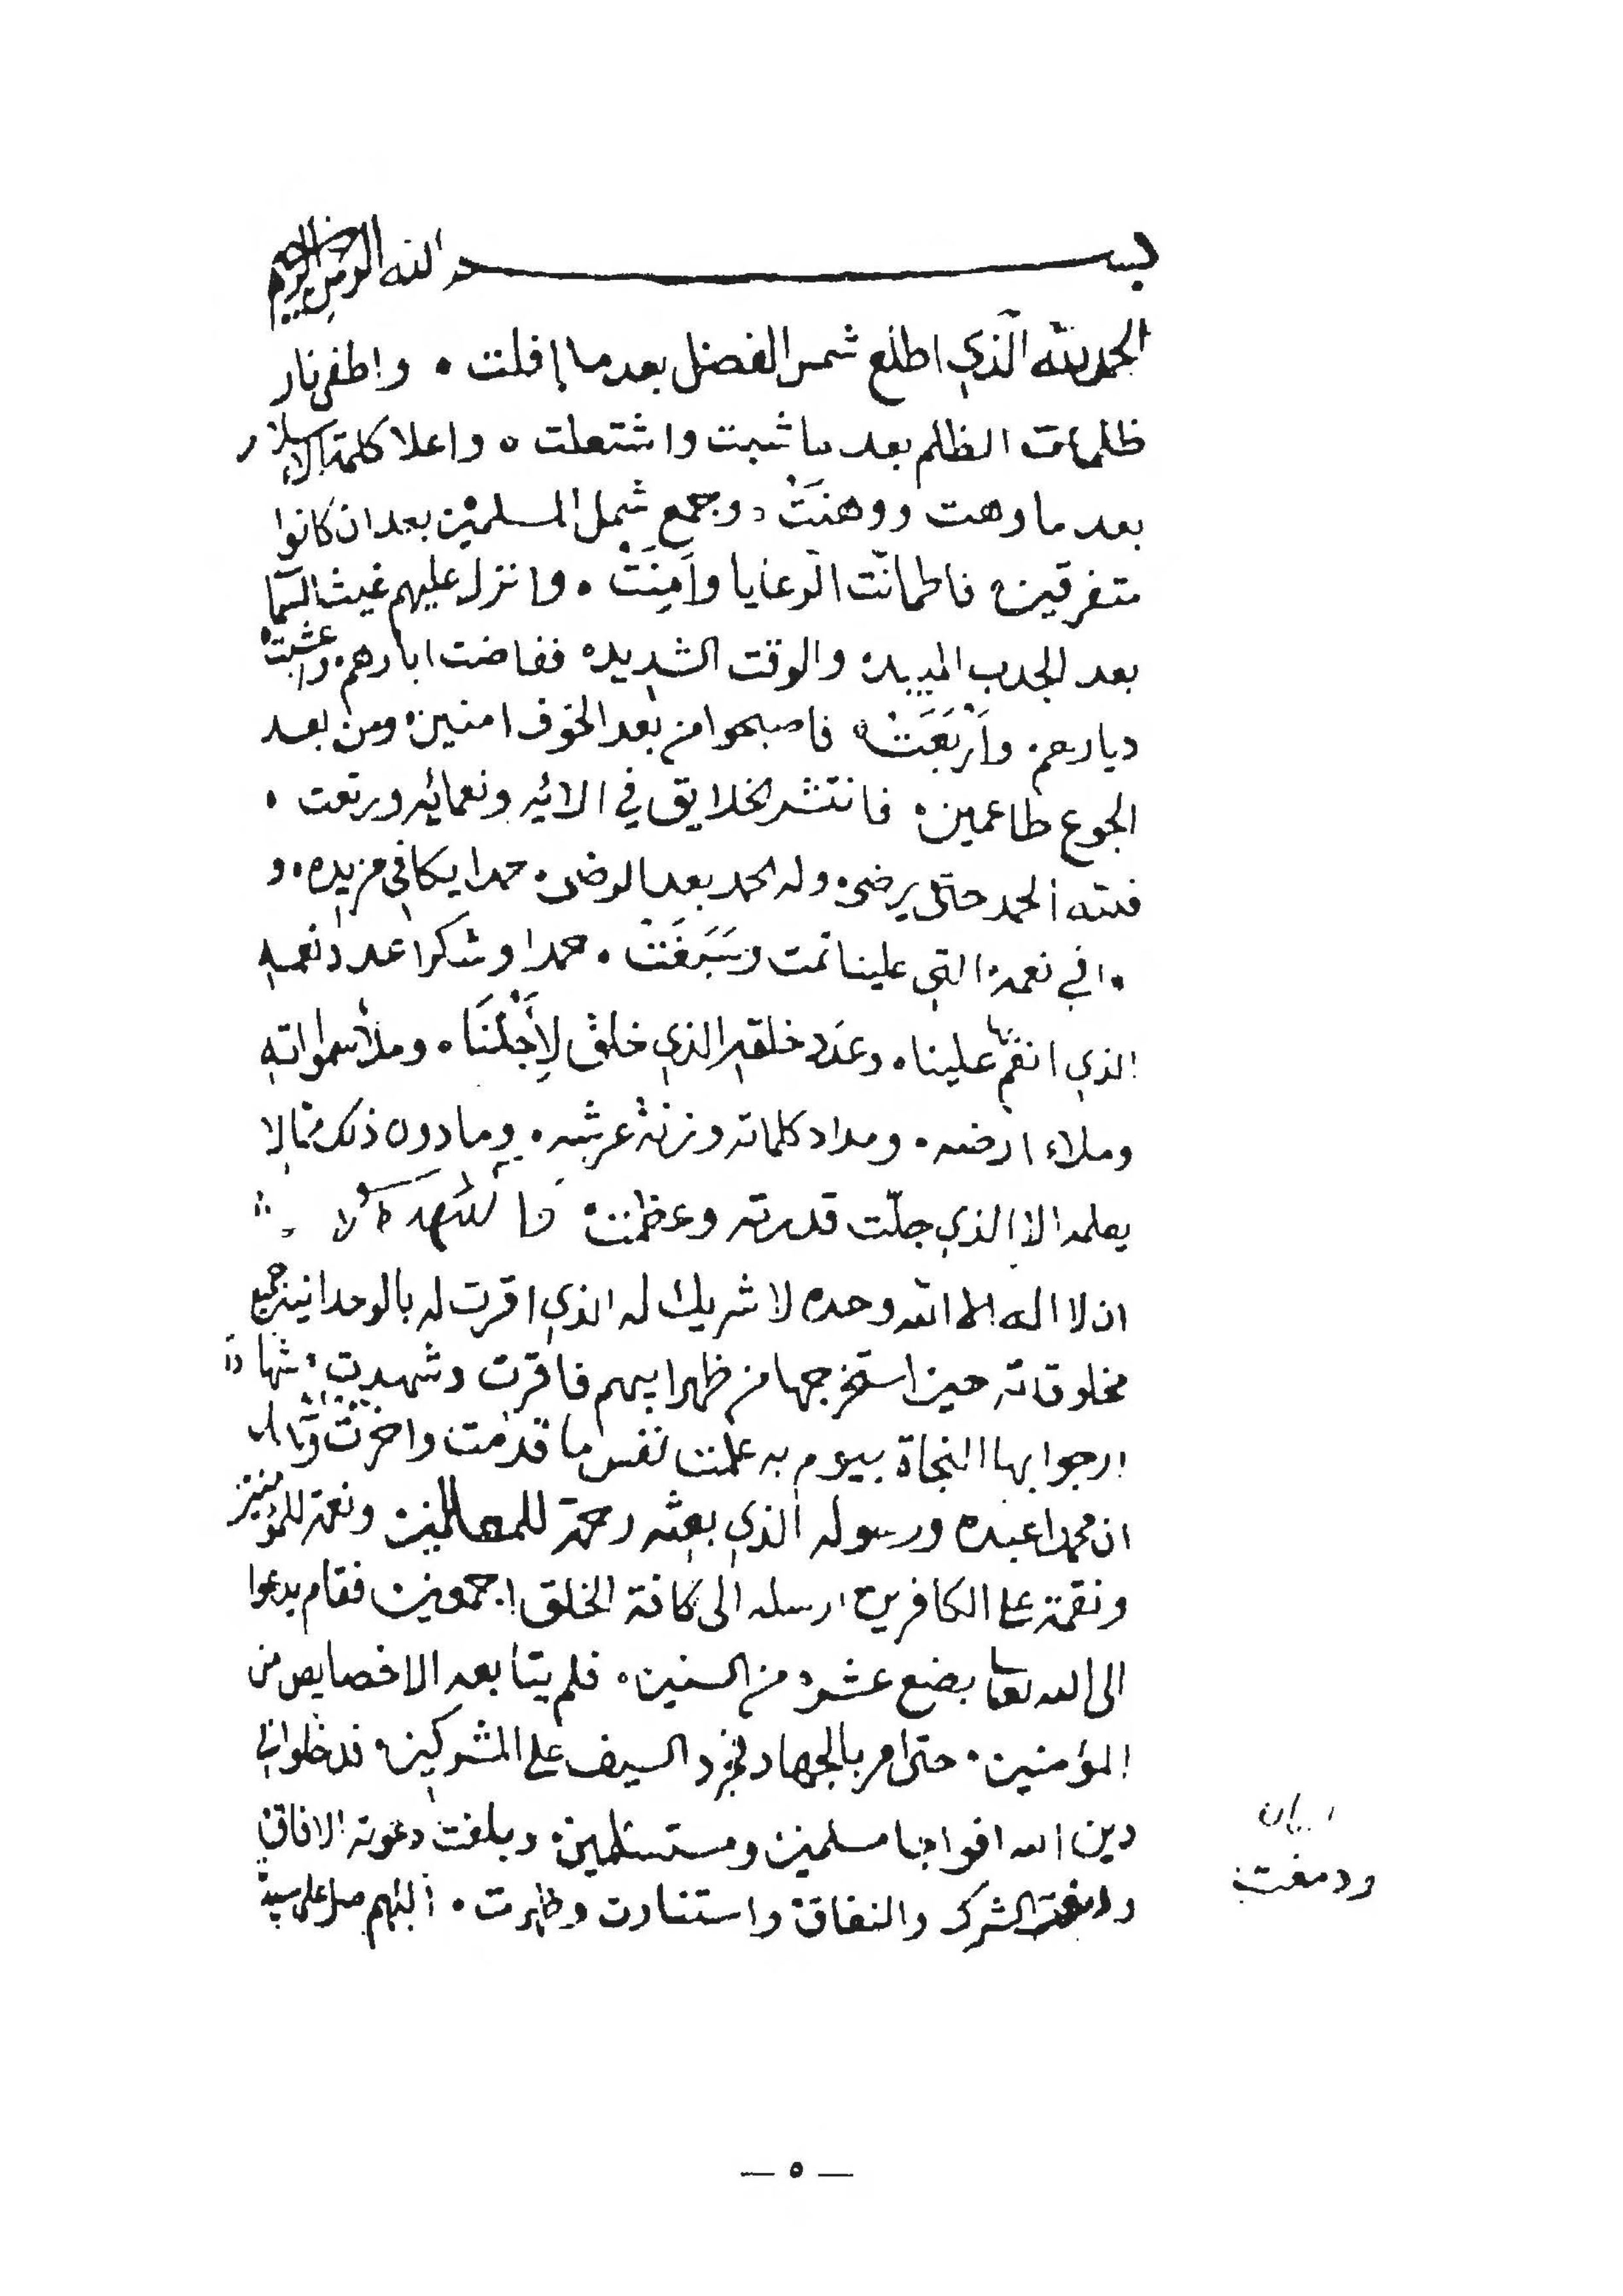 بسم الله الرحمن الرحيم
الحمد لله الّذي اطلع شمس الفضل بعد ما افلت ٠ واطفى نار
ظلمات الظلم بعد ما شبت واشتعلت ٥ واعلا كلمة الاسلام
بعد ما وهت ووهنَتْ ٠ وجمع شمل المسلمين بعد ان كانوا
متفرقين ٠ فاطمانّت الرعايا وآمِنَتْ ٠ وانزل عليهم غيث السما
بعد الجدب المديد ٠ والوقت الشديد ٠ ففاضت ابارهم ٠ واعشبت
ديارهم ٠ واَرْبَعَتْ ٠ فاصبحوا من بعد الخوف امنين ٠ ومن بعد
الجوع طاعمين ٠ فانتشر الخلايق في الائه ونعمائه ورتعت ٠
فلله الحمد حتى يرضى ٠ وله الحمد بعد الرضى ٠ حمدا يكافي مزيده ٠ و
افي نعمه التي علينا تمت وسَبَغَتْ ٠ حمدا وشكرا عدد نعمه
الذي انعم بها علينا ٠ وعدَد خلقه الذي خلق لِأَجْلنَا ٠ وملأ سمواته
وملاء ارضه ٠ ومداد كلماته وزنة عرشه ٠ وما دون ذلك مما لا
يعلمه الا الذي جلّت قدرته وعظمت ٠
ان لا اله الا الله وحده لا شريك له الذي اقرت له بالوحدانية جميع
مخلوقاته حين استخرجها من ظهر ابيهم فاقرت وشهدت ٠ شهادة
ارجوا بها النجاة بيوم به علمت نفس ما قدمت واخرت
ان محمدا عبده ورسوله الذي بعثه رحمة للعالمين ونعمة للمؤمنين
ونقمة على الكافرين ارسله الى كافة الخلق اجمعين فقام يدعوا
الى الله تعالى بضع عشره من السنين ٠ فلم يتابعه الا خصايص من
المؤمنين ٠ حتى امر بالجهاد فجرد السيف على المشركين ٠ فدخلوا في
دين الله افواجا مسلمين ومستسلمين ٠ وبلغت دعوته الافاق
ودمغت الشرك والنفاق واستنارت وظهرت ٠ اللهم صل على سيدنا
بيان
ودمغت
— ٥ —